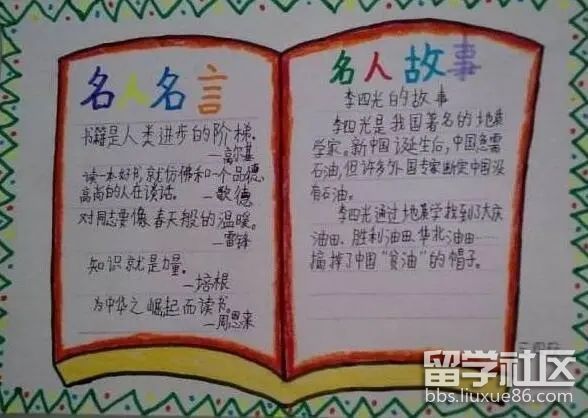 名人名言
书籍是人类进步的阶梯。
—高尔基
读一本好书就仿佛和一个品德
高尚的人在谈话。—歌德
对同志要像春天般的温暖。
—雷锋
知识就是力量。
—培根
为中华之崛起而读书。
—周恩来
名人故事
李四光的故事
李四光是我国著名的地质
学家。新中国诞生后,中国急需
石油,但许多外国专家断定中国没
有石油。
李四光通过地质学找到了大庆
油田、胜利油田、华北油田……
摘掉了中国“贫油”的帽子。
留学社区
bbs.liuxue86.com